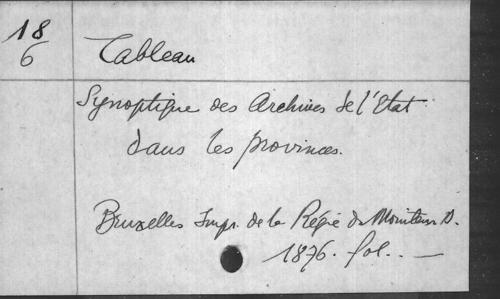 18
6
Tableau
Synoptique des Archives de l'Etat
dans les provinces.
Bruxelles Impr. de la Régie du Moniteur
1876. fol. —